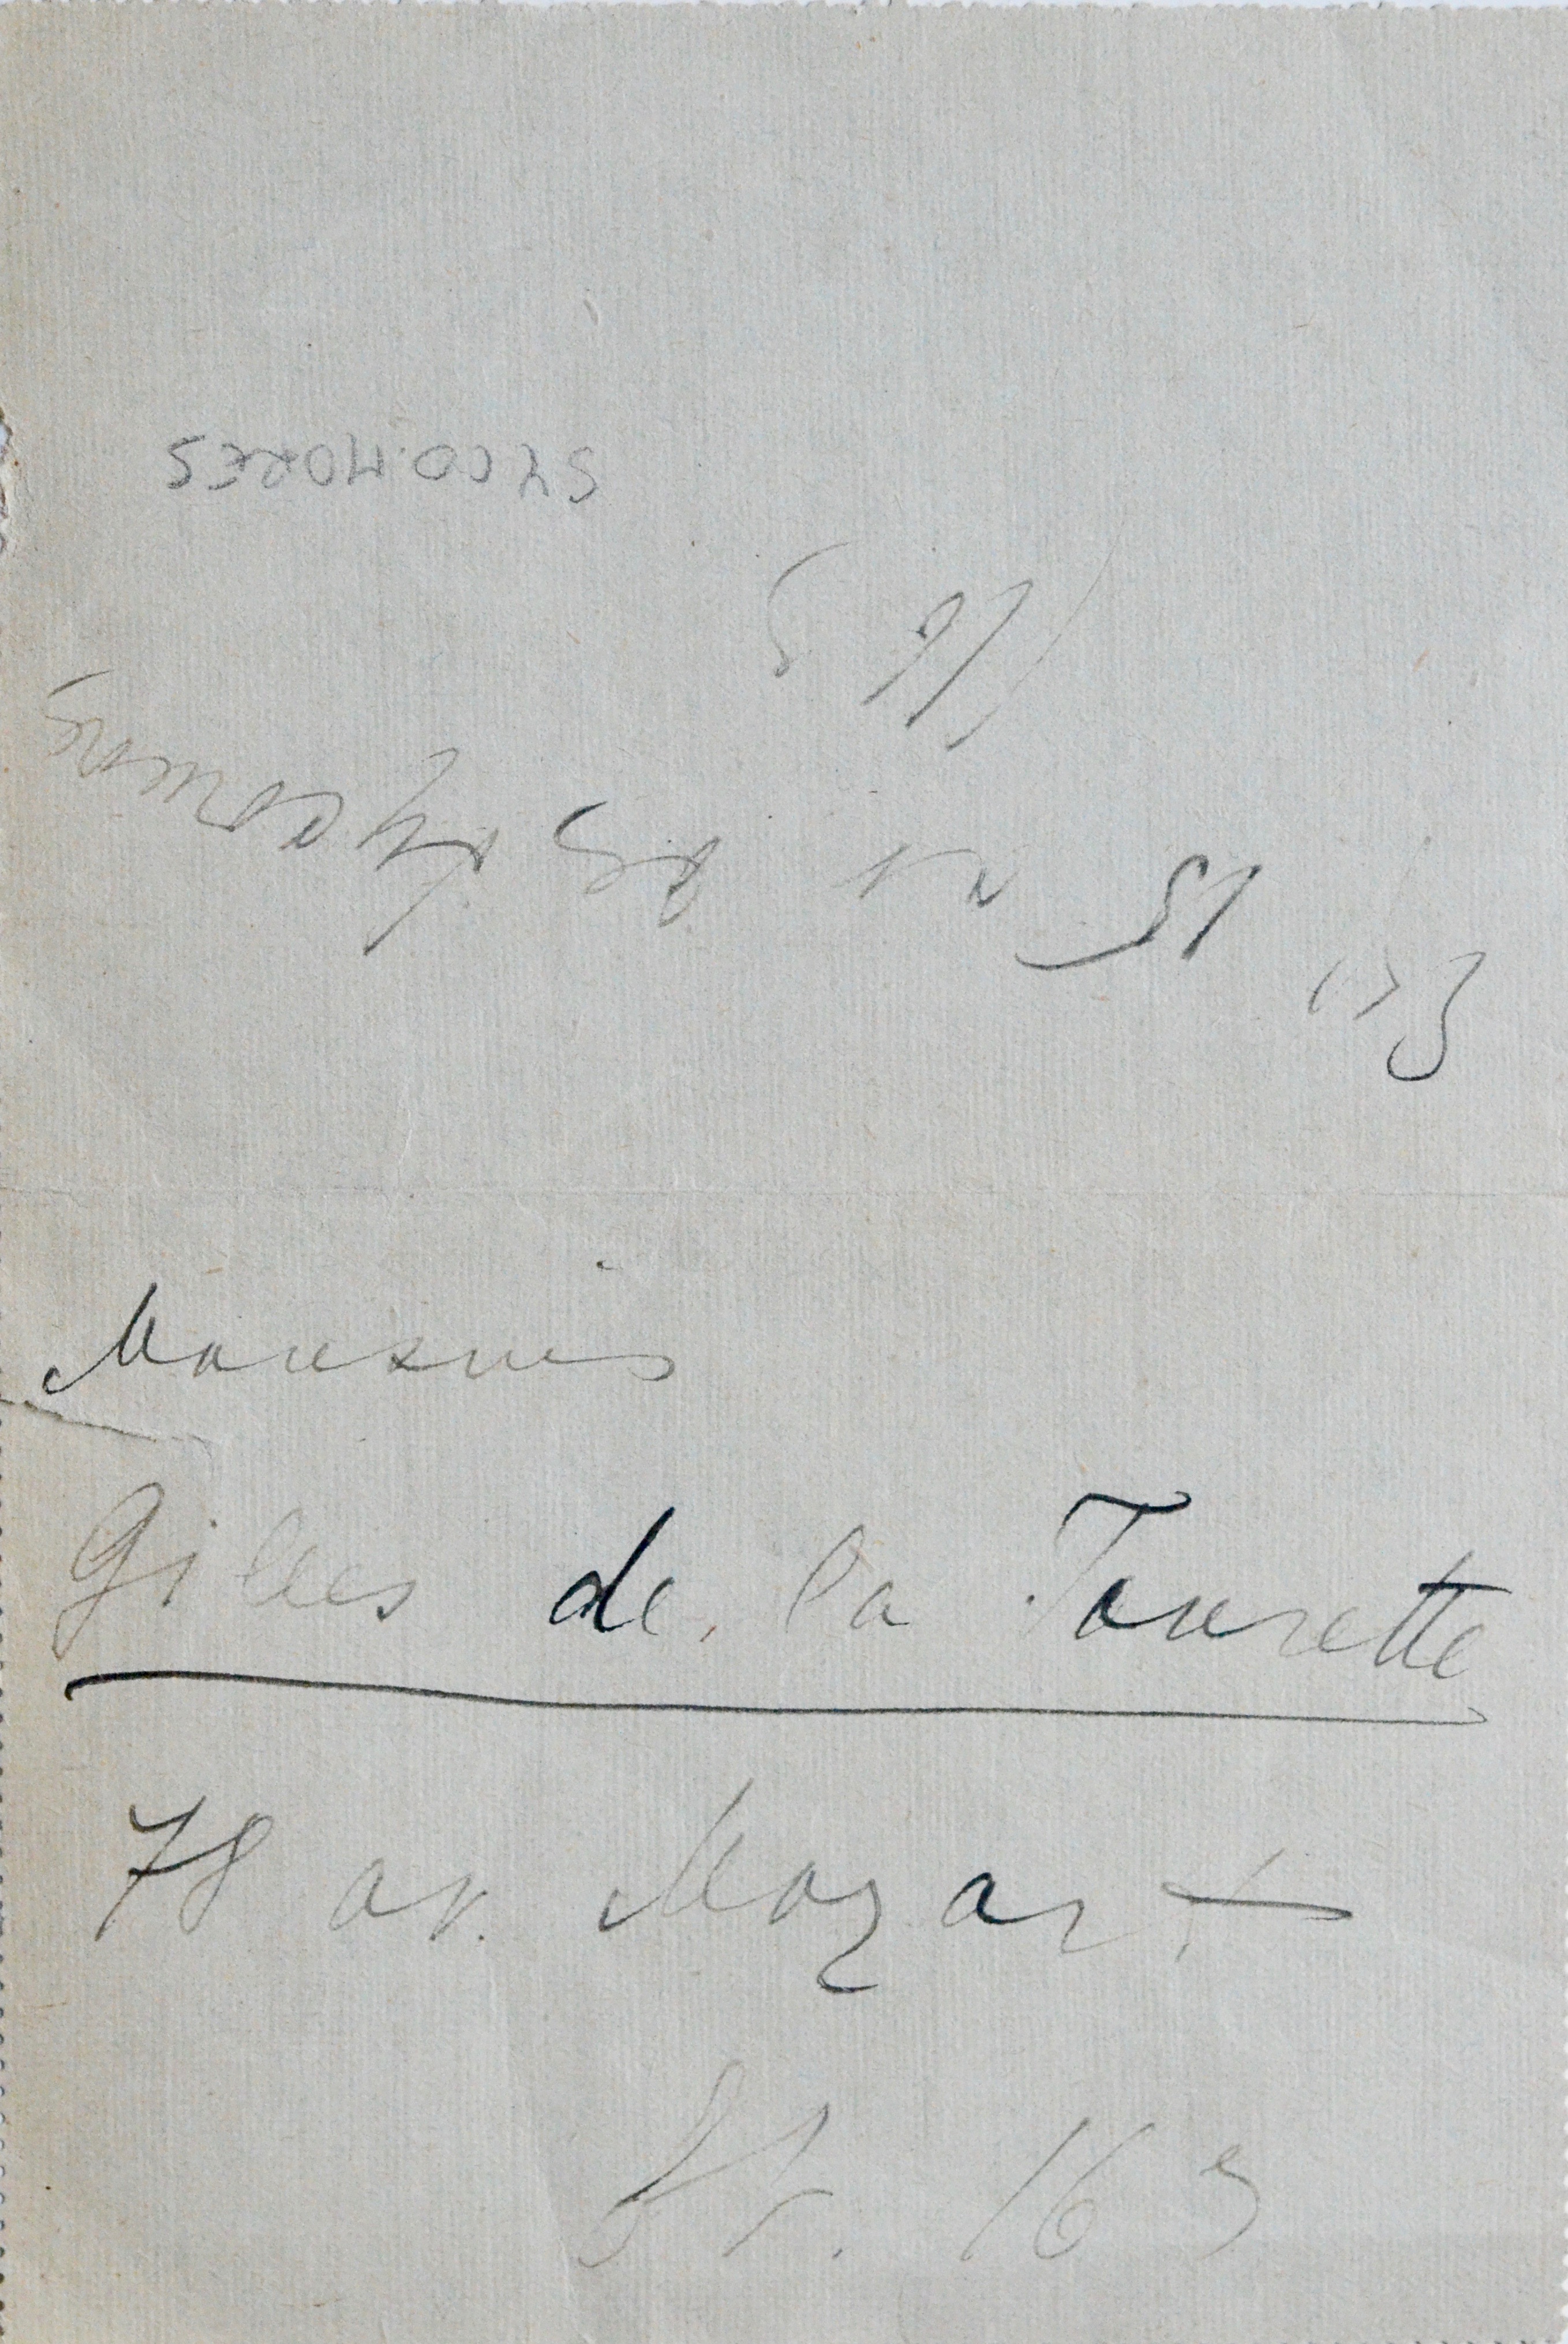 Ici 15 av des Sycomores
16 e
SYCOMORES
Monsieur
Gilles de la Tourette
78 av. Mozart
16 e